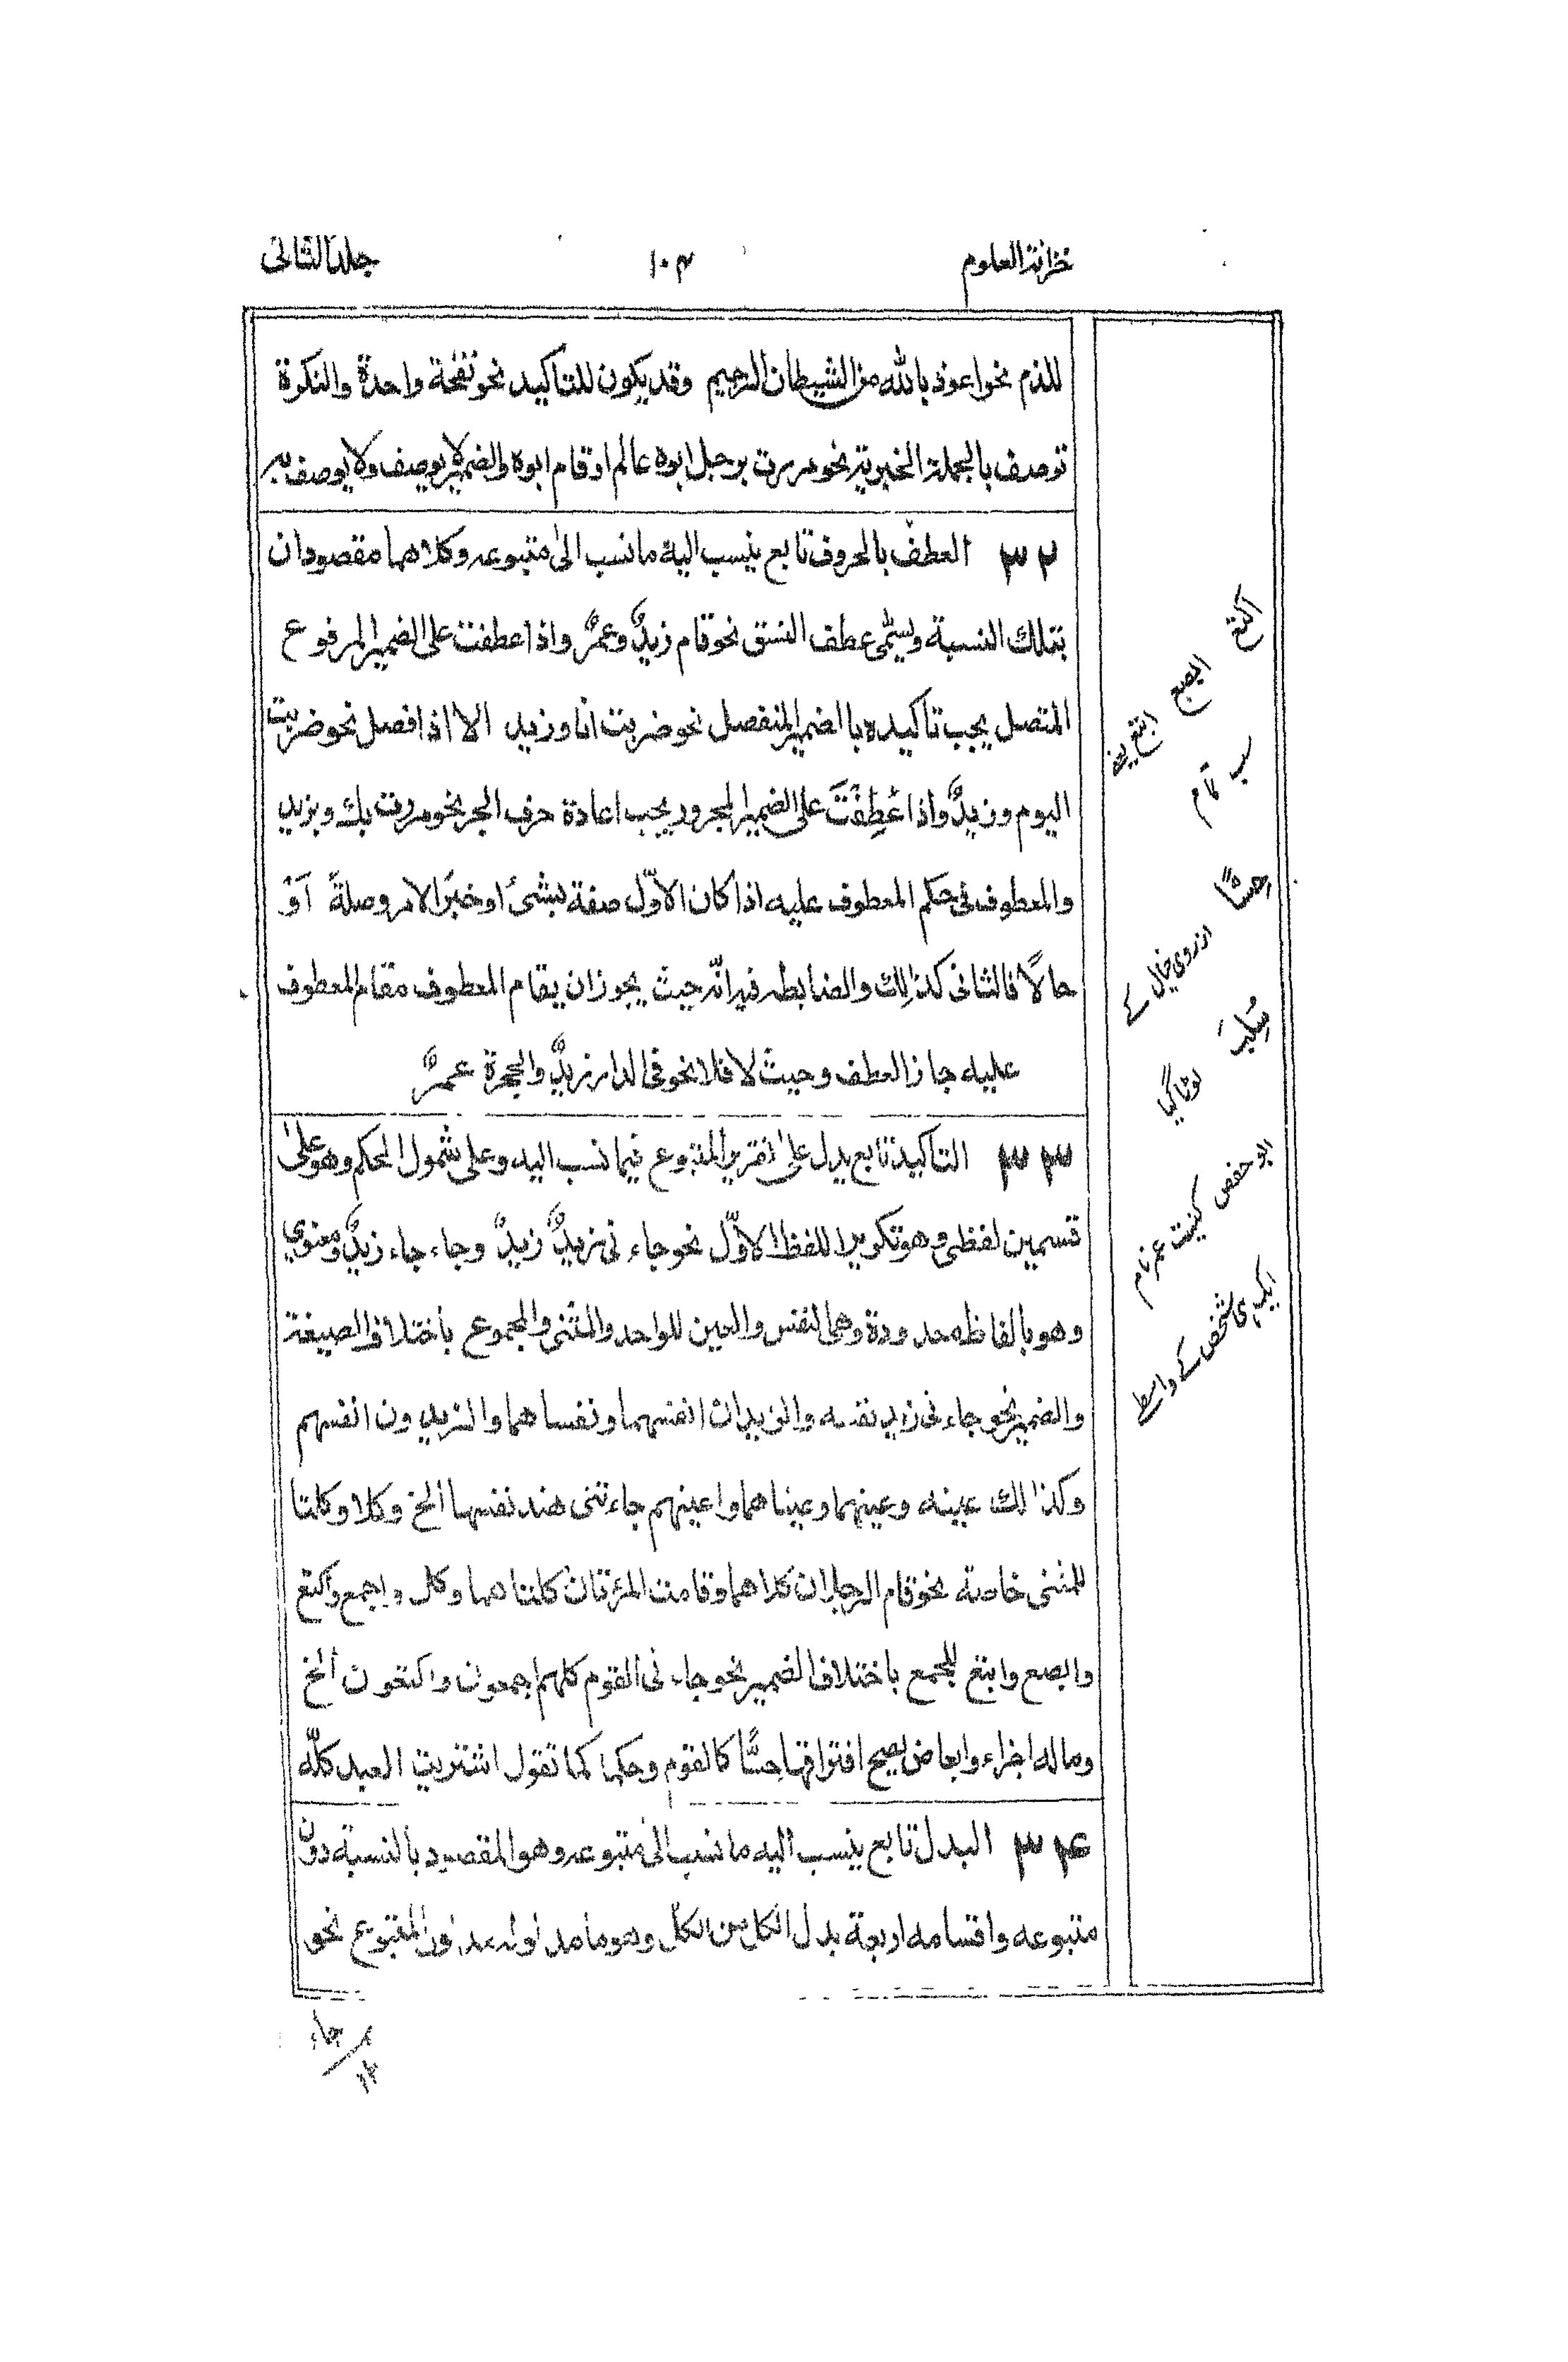 خزانة العلوم
۱۰۴
جلد الثانی
للذم نحو اعوذ بالله من الشيطان الرجيم وقد يكون للتاكيد نحو نفخة واحدة والنكرة
توصف بالجملة الخبرية نحو مررت برجل ابوه عالم او قام ابوه والضمير لا يوصف ولا يوصف به
۳۲ العطف بالحروف تابع ينسب اليه ما نسب الى متبوعه وكلاهما مقصودان
بتلك النسبة ويسمّى عطف النسق نحو قام زيدٌ وعمرٌ واذا عطفت على الضمير المرفوع
المتصل يجب تاكيده بالضمير المنفصل نحو ضربت انا وزيد الا اذا فصل نحو ضربت
اليوم وزيدٌ واذا عُطِفَتَ على الضمير المجرور يجب اعادة حرف الجر نحو مررت بك وبزيد
والمعطوف فى حكم المعطوف عليه اذا كان الاوّل صفة لشئ او خبرًا لامر وصلةً اَوْ
حالًا فالثانى كذالك والضابطه فيه انّه حيث يجوز ان يقام المعطوف مقام المعطوف
عليه جاز العطف وحيث لا فلا نحو فى الدار زيدٌ والحجرة عمرٌ
۳۳ التاكيد تابع يدل على تقرير المتبوع فيما نسب اليه وعلى شمول الحكم وهو على
قسمين لفظى وهو تكرير اللفظ الاوّل نحو جاءنى زيدٌ زيدٌ وجاء جاء زيدٌ ومعنوى
وهو بالفاظ محدودة وهى النفس والعين للواحد والمثنى والمجموع باختلاف الصيغة
والضمير نحو جاءنى زيد نفسه والزيدان انفسهما ونفساهما والزيدون انفسهم
وكذالك عينه وعينهما وعيناهما واعينهم جاءتنى هند نفسها الخ وكلا وكلتا
للمثنى خاصة نحو قام الرجلان كلاهما وقامت المرئتان كلتاهما وكل واجمع واكتع
وابصع وابتع للجمع باختلاف الضمير نحو جاءنى القوم كلهم اجمعون واكتعون الخ
وماله اجزاء وابعاض يصح افتراقها حِسًّا كالقوم وحكما كما تقول اشتريت العبد كلّه
۳۴ البدل تابع ينسب اليه ما نسب الى متبوعه وهو المقصود بالنسبة دون
متبوعه واقسامه اربعة بدل الكل من الكل وهو ما مدلوله مدلول المتبوع نحو
اکتع
ابصع
ابتع یعنی
سب تمام
حِسًّا
از روی خیال کے
سُلِبَ
لوٹا گیا
ابو حفص کنیت عمر نام
ایک ہی شخص کے واسطے
جاء